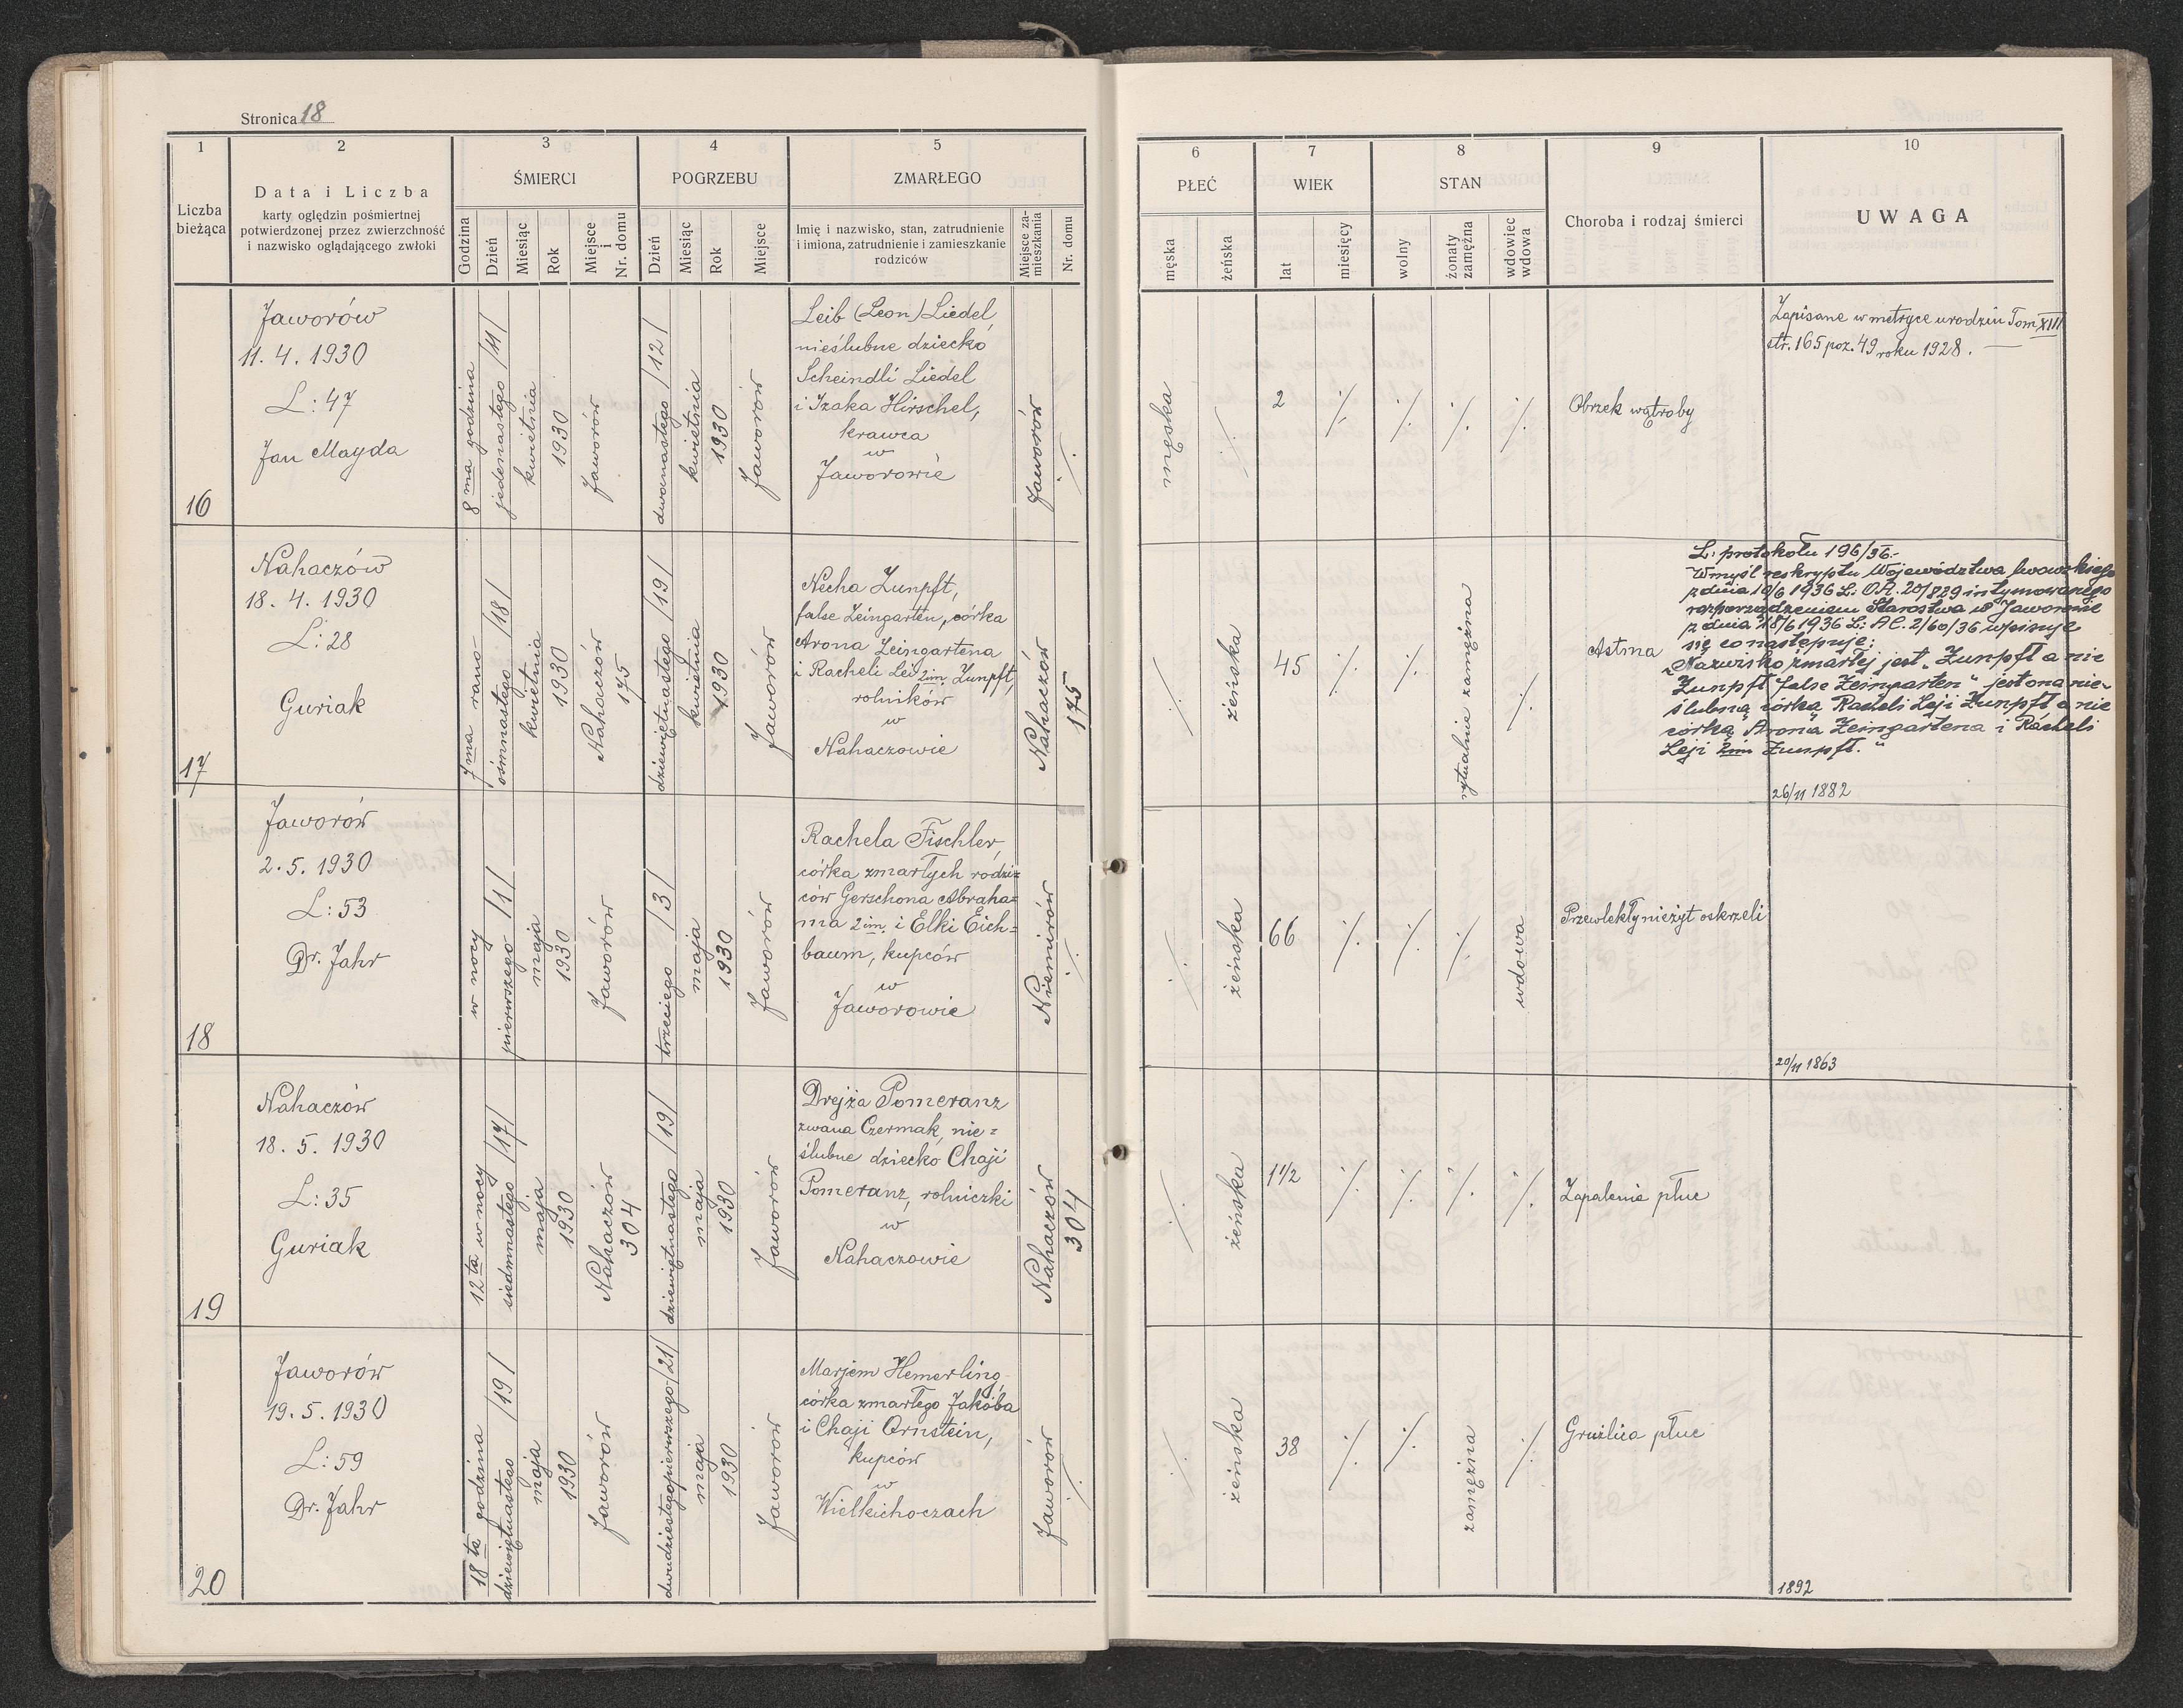 Stronica 18
1
2
3
4
5
Liczba bieżąca
Data i Liczba
karty oględzin pośmiertnej
potwierdzonej przez zwierzchność
i nazwisko oglądającego zwłoki
ŚMIERCI
Godzina
Dzień
Miesiąc
Rok
Miejsce i Nr. domu
POGRZEBU
Dzień
Miesiąc
Rok
Miejsce
ZMARŁEGO
Imię i nazwisko, stan, zatrudnienie
i imiona, zatrudnienie i zamieszkanie
rodziców
Miejsce za-
mieszkania
Nr. domu
6
7
8
9
10
PŁEĆ
męska
żeńska
WIEK
lat
miesięcy
STAN
wolny
żonaty
zamężna
wdowiec
wdowa
Choroba i rodzaj śmierci
UWAGA
16
Jaworów
11. 4. 1930
L: 47
Jan Mayda
8ma godzina
jedenastego /11/
kwietnia
1930
Jaworów
dwunastego /12/
kwietnia
1930
Jaworów
Leib (Leon) Liedel,
nieślubne dziecko
Scheindli Liedel
i Izaka Hirschel,
krawca
w
Jaworowie
Jaworów
./.
męska
./.
2
./.
./.
./.
./.
Obrzęk wątroby
Zapisane w metryce urodzin Tom XIII
str. 165 poz. 49 roku 1928.
17
Nahaczów
18. 4. 1930
L: 28
Guriak
7ma rano
ośmnastego /18/
kwietnia
1930
Nahaczów
175
dziewiętnastego /19/
kwietnia
1930
Jaworów
Necha Zunpft,
false Zeingarten, córka
Arona Zeingartena
i Racheli Lei 2im. Zunpft,
rolników
w
Nahaczowie
Nahaczów
175
./.
żeńska
45
./.
./.
rytualnie zamężna
./.
Astma
L: protokołu 196/36.-
W myśl reskryptu Województwa lwowskiego
z dnia 10/6 1936 L: O.A. 20/829 intymowanego
rozporządzeniem Starostwa w Jaworowie
z dnia 18/6 1936 L: A.C. 2/60/36 wpisuje
się co następuje:
"Nazwisko zmarłej jest "Zunpft a nie
Zunpft false Zeingarten" jest ona nie-
ślubną córką Racheli Leji Zunpft a nie
córką "Arona" Zeingartena i Racheli
Leji 2im Zunpft."
26/11 1882
18
Jaworów
2. 5. 1930
L: 53
Dr. Jahr
w nocy
pierwszego /1/
maja
1930
Jaworów
trzeciego /3/
maja
1930
Jaworów
Rachela Fischler,
córka zmarłych rodzi=
ców Gerschona Abraha=
ma 2im. i Elki Eich=
baum, kupców
w
Jaworowie
Niemirów
./.
./.
żeńska
66
./.
./.
./.
wdowa
Przewlekły nieżyt oskrzeli
20/11 1863
19
Nahaczów
18. 5. 1930
L: 35
Guriak
12ta w nocy
siedmnastego /17/
maja
1930
Nahaczów
304
dziewiętnastego /19/
maja
1930
Jaworów
Drejza Pomeranz
zwana Czermak, nie=
ślubne dziecko Chaji
Pomeranz, rolniczki
w
Nahaczowie
Nahaczów
304
./.
żeńska
1 1/2
./.
./.
./.
./.
Zapalenie płuc
20
Jaworów
19. 5. 1930
L: 59
Dr. Jahr
18ta godzina
dziewiętnastego /19/
maja
1930
Jaworów
dwudziestegopierwszego /21/
maja
1930
Jaworów
Marjem Hemerling,
córka zmarłego Jakóba
i Chaji Ornstein,
kupców
w
Wielkichoczach
Jaworów
./.
./.
żeńska
38
./.
./.
zamężna
./.
Gruźlica płuc
1892